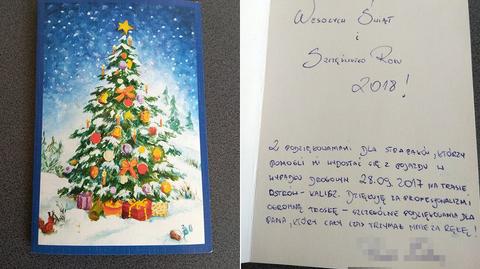 Wesołych Świąt
i
Szczęśliwego Roku
2018!
Z podziękowaniami dla strażaków, którzy
pomogli mi wydostać się z pojazdu w
wypadku drogowym 28.09.2017 na trasie
Ostrów - Kalisz. Dziękuję za profesjonalizm i
ogromną troskę - szczególne podziękowania dla
Pana, który cały czas trzymał mnie za rękę!